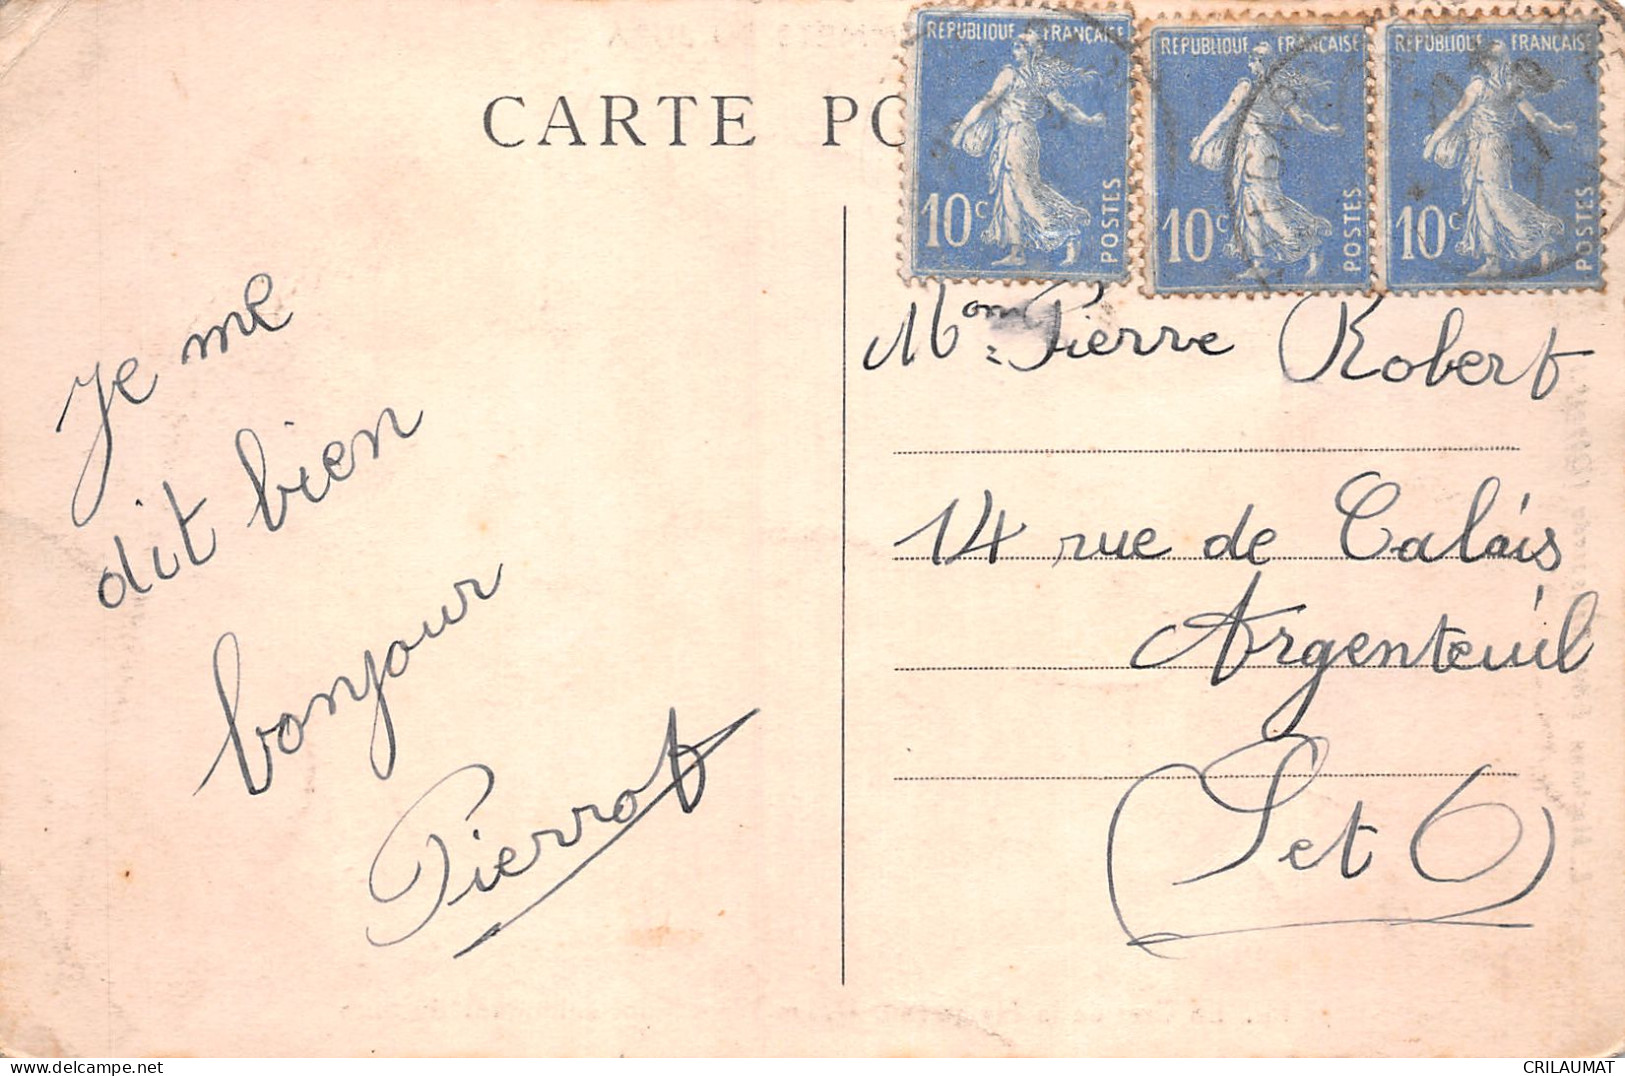 CARTE PO
REPUBLIQUE FRANÇAISE
10c POSTES
REPUBLIQUE FRANÇAISE
10c POSTES
REPUBLIQUE FRANÇAISE
10c POSTES
Je me
dit bien
bonjour
Pierrot
Mom Pierre Robert
14 rue de Calais
Argenteuil
(Set O)
CRILAUMAT